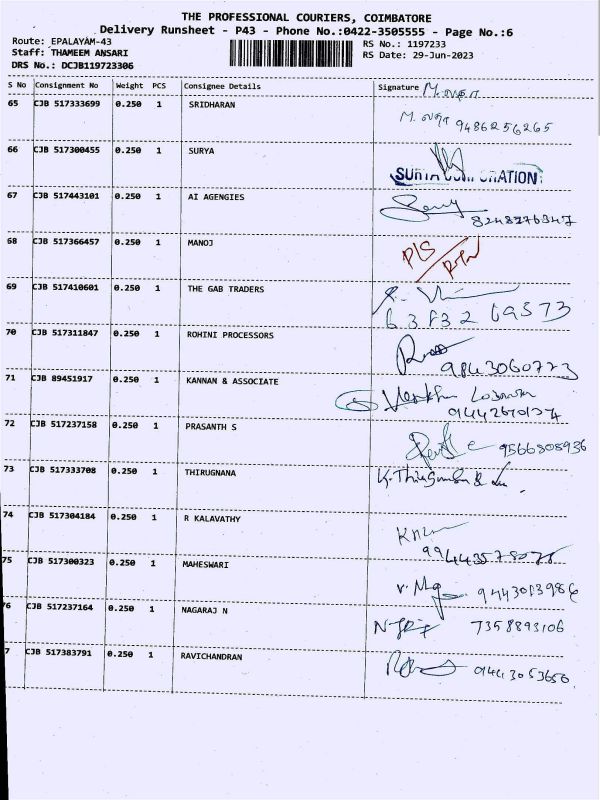 THE PROFESSIONAL COURIERS, COIMBATORE
Delivery Runsheet - P43 - Phone No.:0422-3505555 - Page No.:6
Route: EPALAYAM-43 RS No.: 1197233
Staff: THAMEEM ANSARI RS Date: 29-Jun-2023
DRS No.: DCJB119723306
S No Consignment No Weight PCS Consignee Details Signature
65 CJB 517333699 0.250 1 SRIDHARAN
9486256265
66 CJB 517300455 0.250 1 SURYA
67 CJB 517443101 0.250 1 AI AGENGIES
8248276347
68 CJB 517366457 0.250 1 MANOJ
69 CJB 517410601 0.250 1 THE GAB TRADERS
70 CJB 517311847 0.250 1 ROHINI PROCESSORS
9843060773
71 CJB 89451917 0.250 1 KANNAN & ASSOCIATE
72 CJB 517237158 0.250 1 PRASANTH S
9566808936
73 CJB 517333708 0.250 1 THIRUGNANA
74 CJB 517304184 0.250 1 R KALAVATHY
75 CJB 517300323 0.250 1 MAHESWARI
9443013986
76 CJB 517237164 0.250 1 NAGARAJ N
7358893106
7 CJB 517383791 0.250 1 RAVICHANDRAN
9443053656